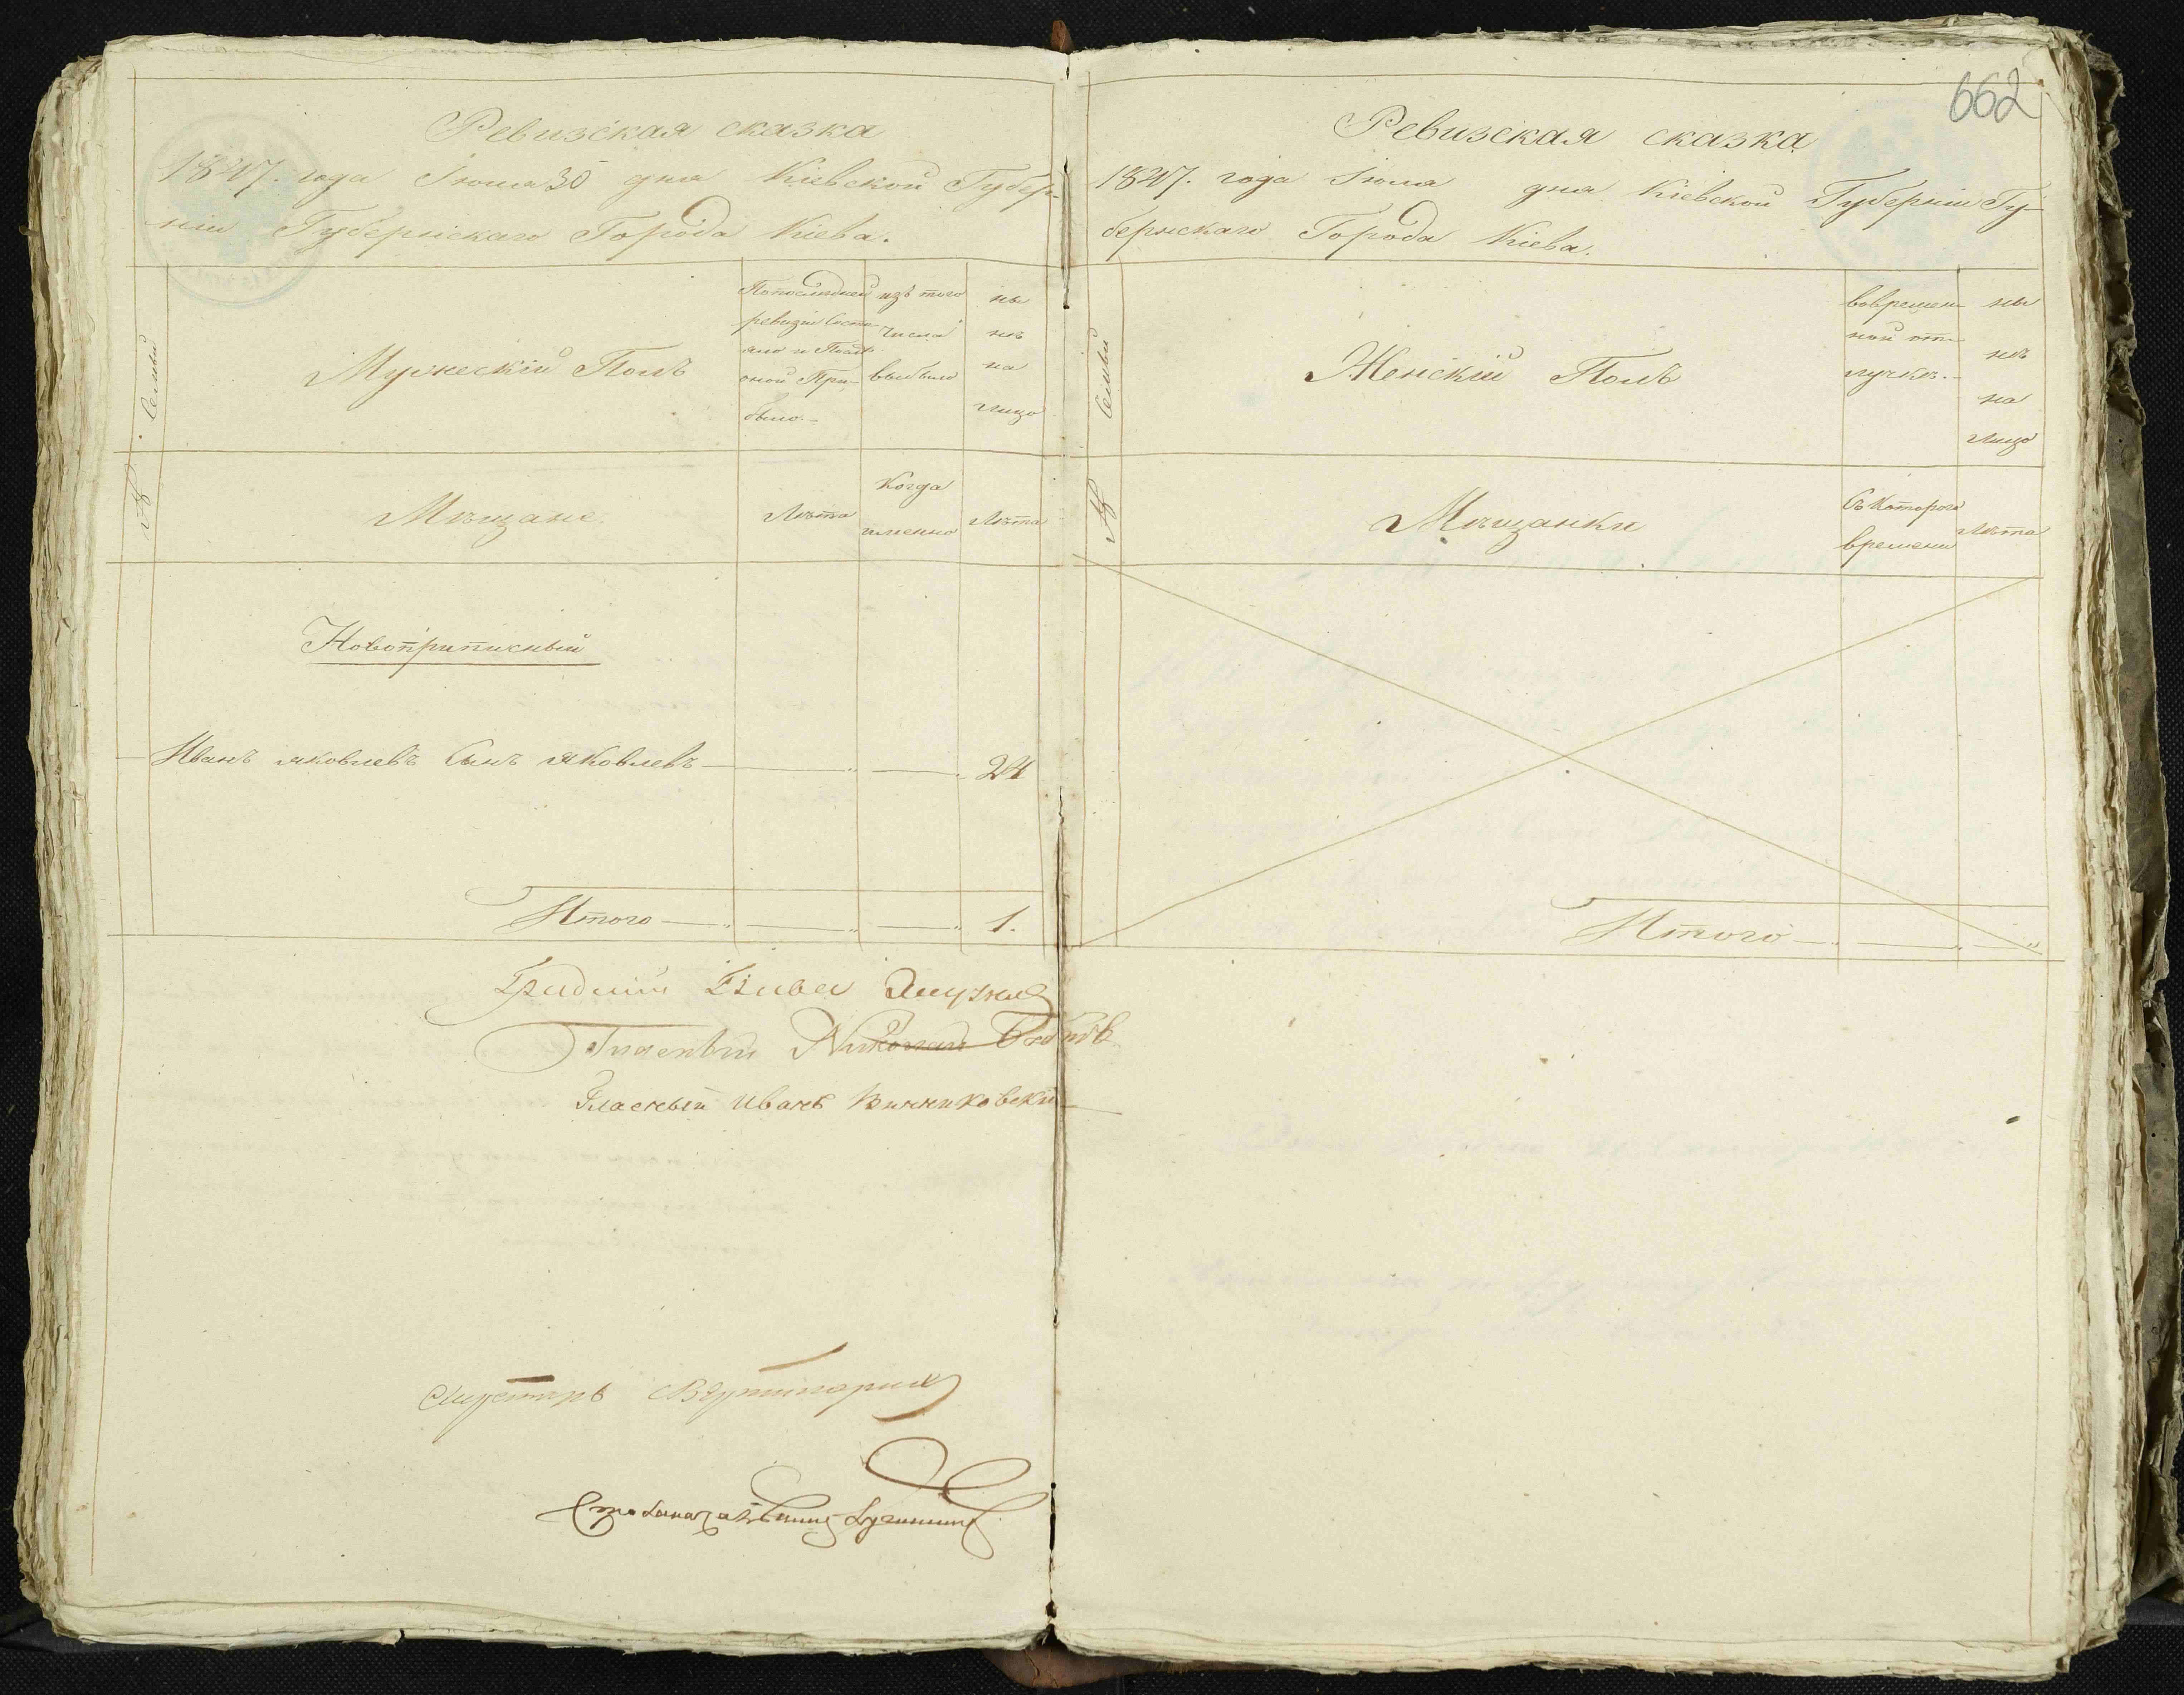 Ревизская сказка
1847. года Іюля 30 дня Кіевской Губер-
ніи Губернскаго Города Кіева.
№ Семьи
Мужескій Полъ
По последней
ревизіи Состо
яло и После
оной При-
было.
изъ того
числа
выбыло
ны
нѣ
на
лицо
Мѣщане.
Лѣта
Когда
именно
Лѣта
Новоприписный
Иванъ яковлевъ Сынъ яковлевъ 24
Итого 1.
Гласный Николай
Гласный Иванъ Винниковскій
662
Ревизская сказка
1847. года Іюля дня Кіевской Губерніи Гу-
бернскаго Города Кіева.
№ Семьи
Женскій Полъ
вовремен
ной от
лучкѣ.
ны
нѣ
на
лицо
Мѣщанки
Съ Котораго
времени
Лѣта
Итого